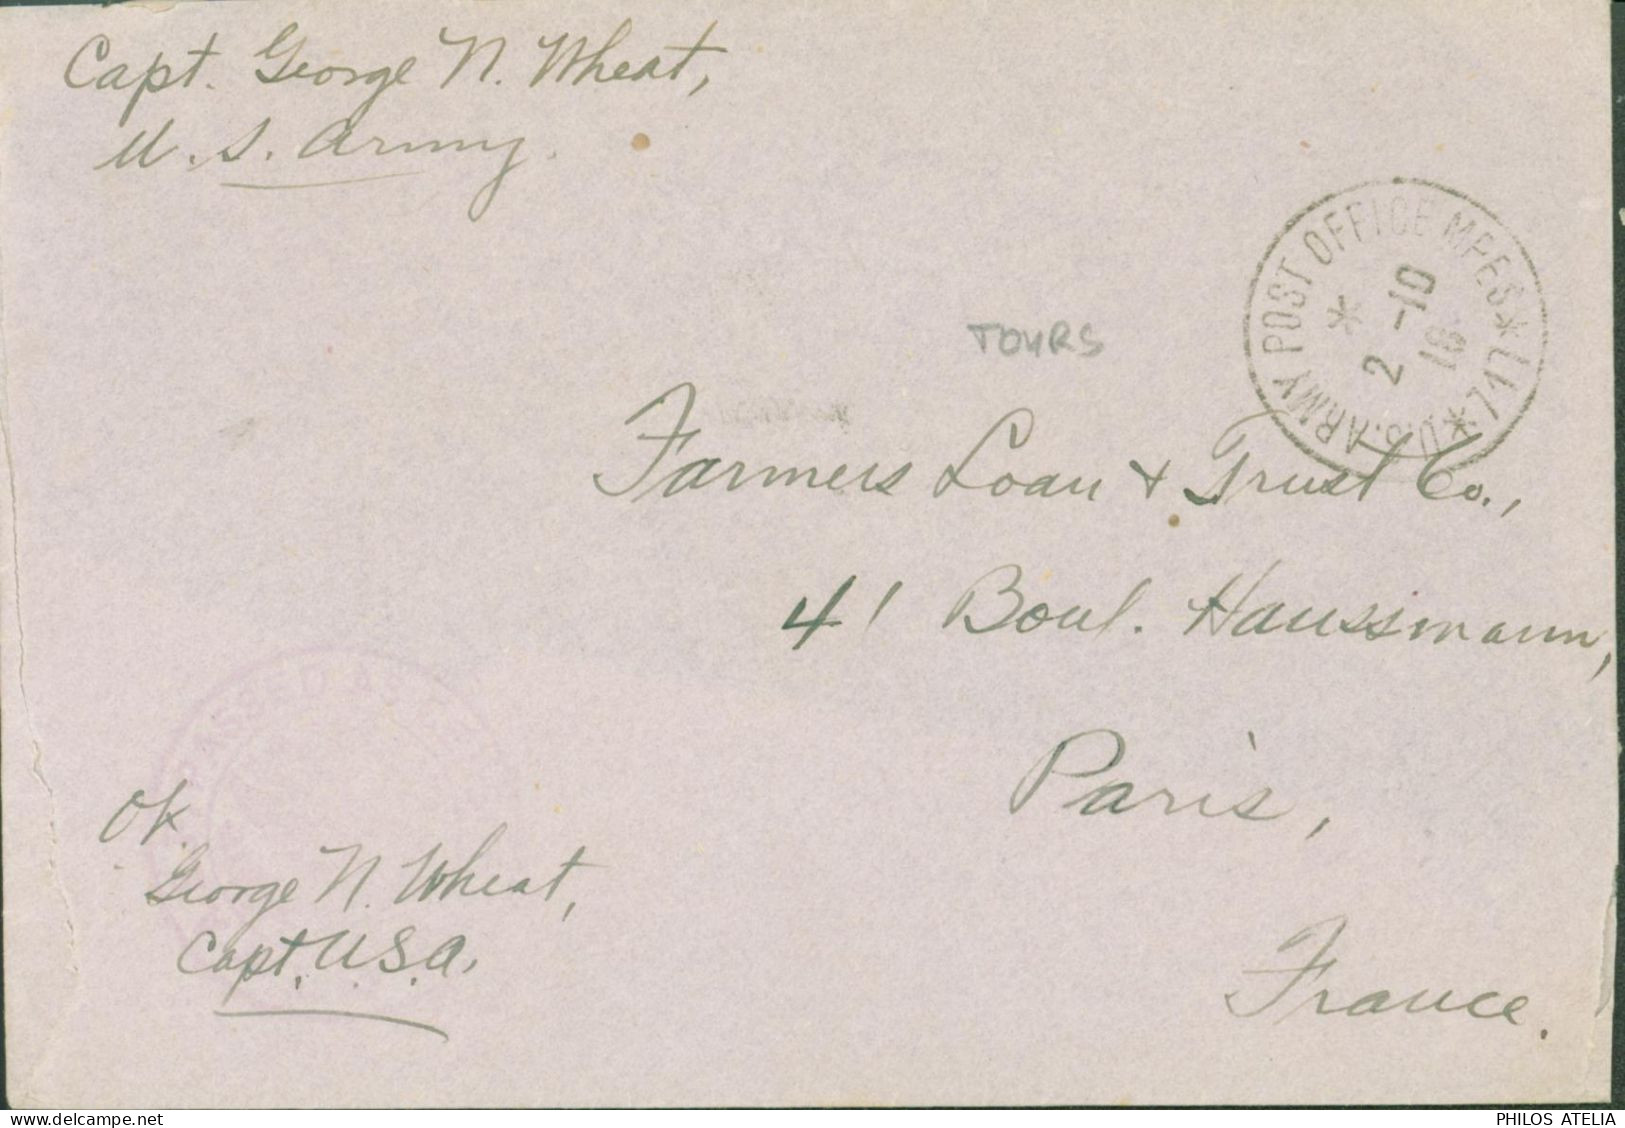 Capt. George N. Wheat,
U. S. Army.
U.S. ARMY POST OFFICE MPES * 717 *
*
2 -10
18
TOURS
Farmers Loan & Trust Co.,
41 Boul. Haussmann,
Paris,
France.
PASSED AS
OK
George N. Wheat,
Capt. U.S.A.
delcampe.net
PHILOS ATELIA